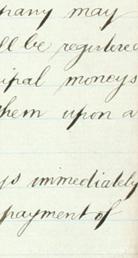 pany may
ll be registered
ipal moneys
them upon a
ys immediately
payment of